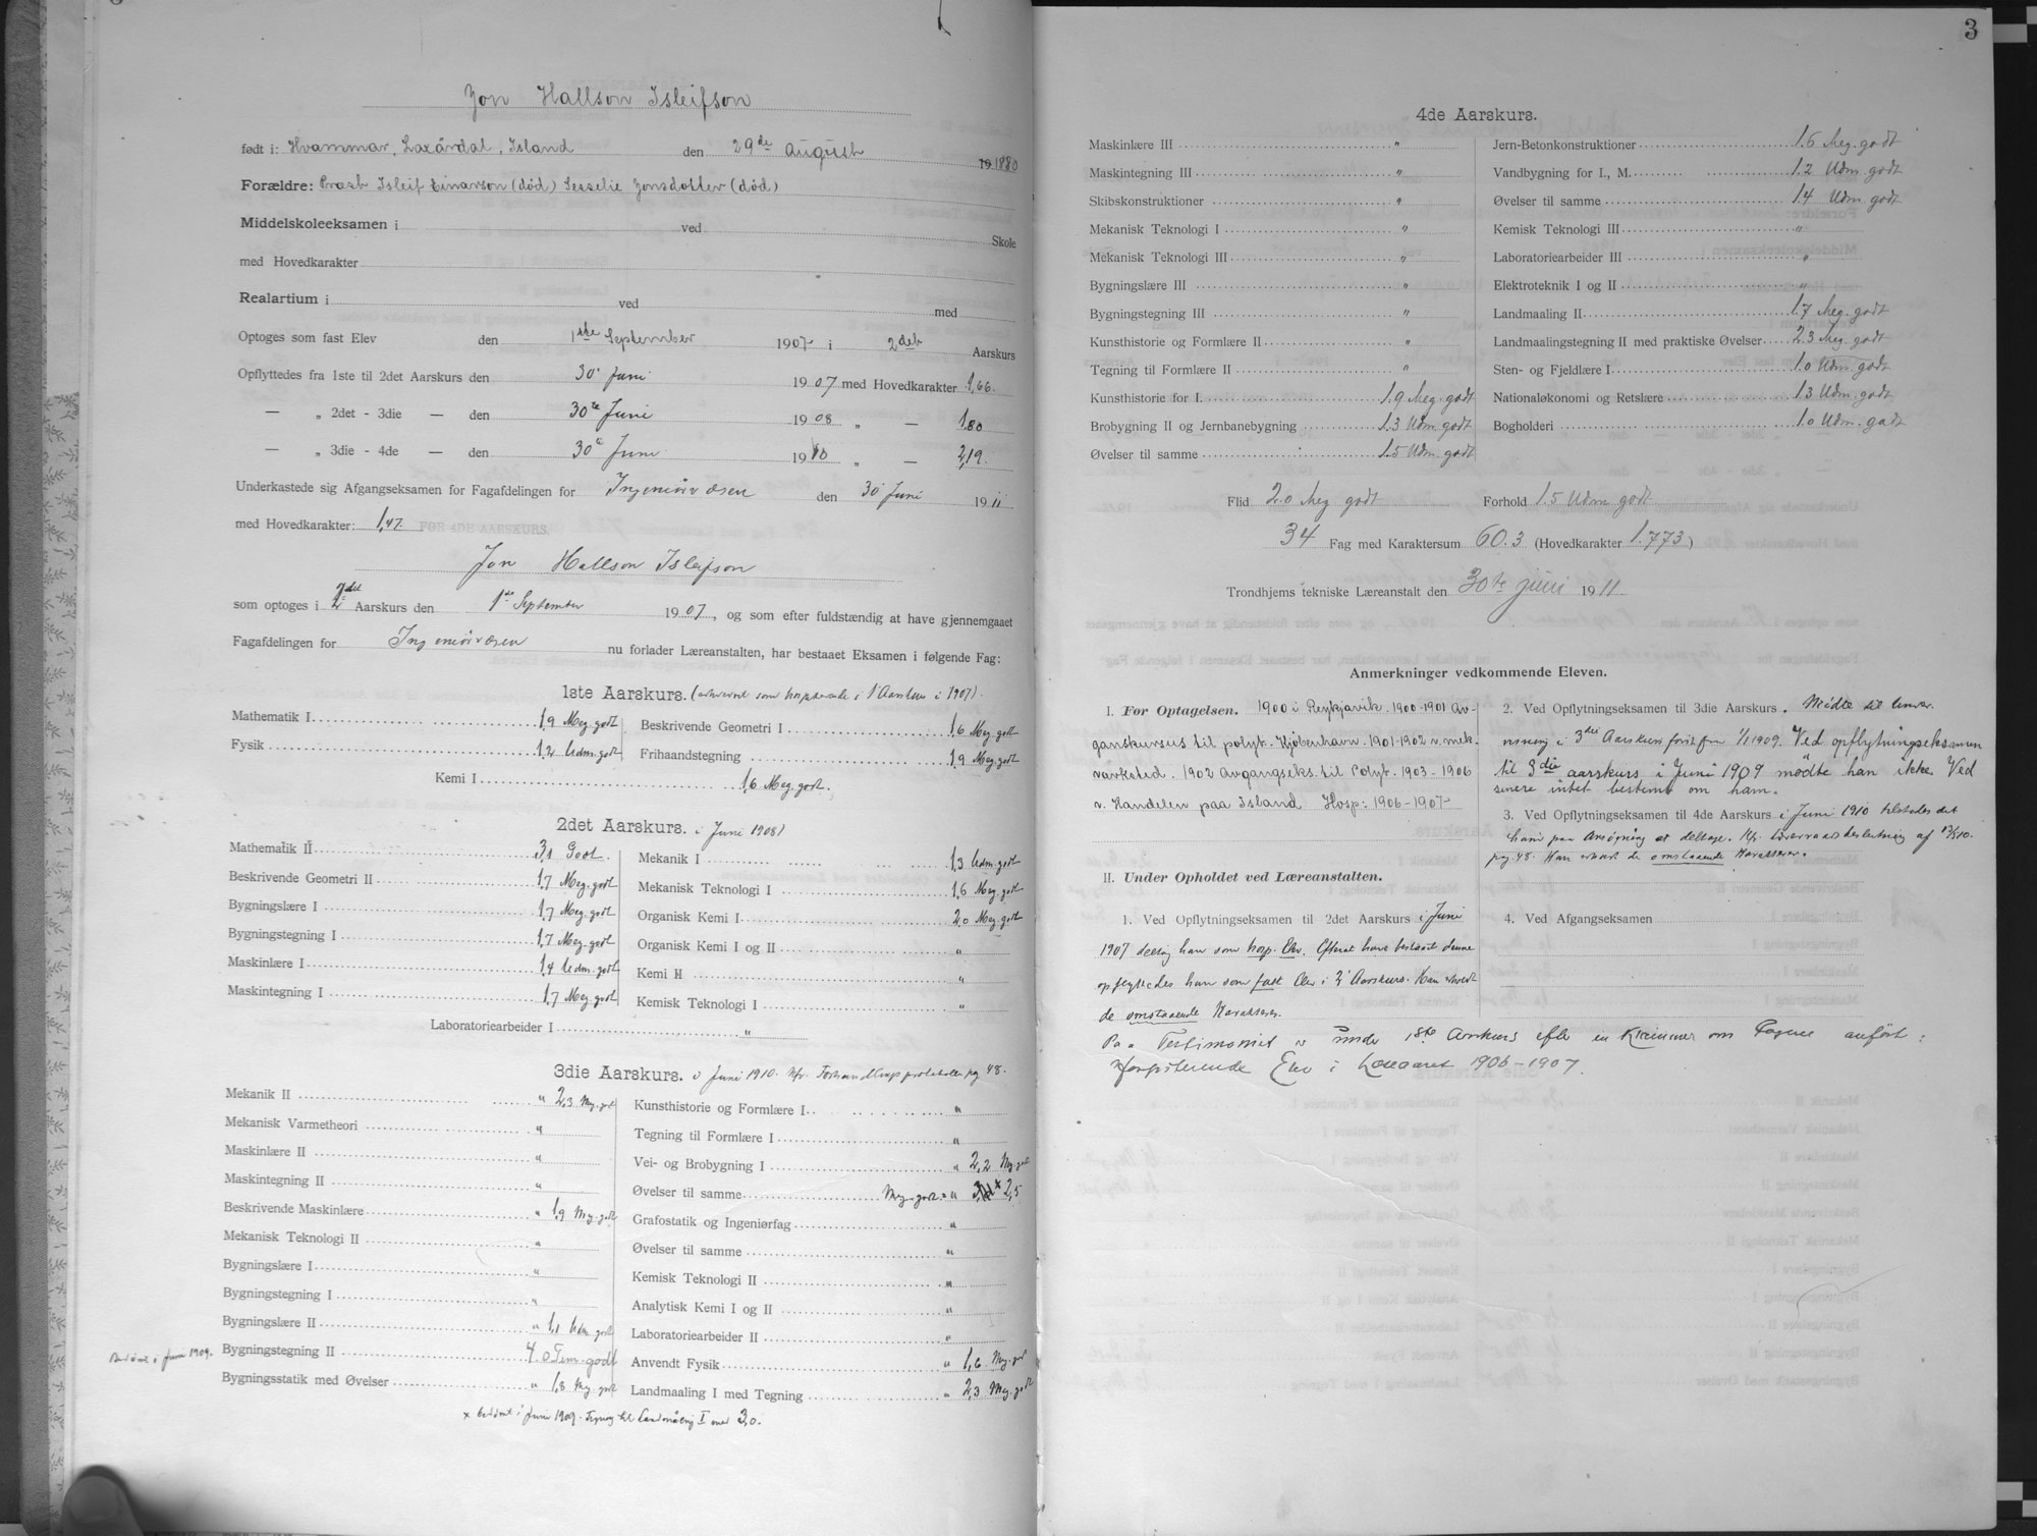 Jon Hallson Isleifson
født i: Hvammar, Laxárdal, Island den 29de August 1880
Forældre: Præst Isleif Einarson (död) Sesselie Jonsdotter (död)
Middelskoleeksamen i ved Skole
med Hovedkarakter
Realartium i ved med
Optoges som fast Elev den 1ste September 1907 i 2det Aarskurs
Opflyttedes fra 1ste til 2det Aarskurs den 30' Juni 1907 med Hovedkarakter 1,66.
— „ 2det - 3die — den 30te Juni 1908 „ — 1.80
— „ 3die - 4de — den 30e Juni 1910 „ — 2,19.
Underkastede sig Afgangseksamen for Fagafdelingen for Ingeniörvæsen den 30' Juni 1911
med Hovedkarakter: 1,47. FOR 4DE AARSKURS.
Jon Hallson Isleifson
som optoges i 2det Aarskurs den 1ste September 1907, og som efter fuldstændig at have gjennemgaaet
Fagafdelingen for Ingeniörvæsen nu forlader Læreanstalten, har bestaaet Eksamen i følgende Fag:
1ste Aarskurs. (erhvervet som hospiterende i 1' Aarskurs i 1907).
Mathematik I 1,9 Meg. godt Beskrivende Geometri I 1,6 Meg. godt
Fysik 1,2 Udm. godt Frihaandstegning 1,9 Meg. godt
Kemi I 1,6 Meg. godt.
2det Aarskurs. i Juni 1908)
Mathematik II 3,1 Godt. Mekanik I 1,3 Udm. godt
Beskrivende Geometri II 1,7 Meg. godt Mekanisk Teknologi I 1,6 Meg. godt
Bygningslære I 1,7 Meg. godt Organisk Kemi I 2.0 Meg. godt
Bygningstegning I 1,7 Meg. godt Organisk Kemi I og II „
Maskinlære I 1,4 Udm. godt Kemi II „
Maskintegning I 1,7 Meg. godt Kemisk Teknologi I „
Laboratoriearbeider I „
3die Aarskurs. i Juni 1910. Kfr. Forhandlingsprotokollen pag 48.
Mekanik II „ 2,3 Meg. godt Kunsthistorie og Formlære I „
Mekanisk Varmetheori „ Tegning til Formlære I „
Maskinlære II „ Vei- og Brobygning I „ 2,2 Meg. godt
Maskintegning II „ Øvelser til samme Meg. godt „ 2,5
Beskrivende Maskinlære „ 1,9 Meg. godt Grafostatik og Ingeniørfag „
Mekanisk Teknologi II „ Øvelser til samme „
Bygningslære I „ Kemisk Teknologi II „
Bygningstegning I „ Analytisk Kemi I og II „
Bygningslære II „ 1,1 Udm. godt Laboratoriearbeider II „
Bedömt i Juni 1909. Bygningstegning II 4.0 Tem. godt Anvendt Fysik „ 1,6 Meg. godt
Bygningsstatik med Øvelser „ 1,8 Meg. godt Landmaaling I med Tegning „ 2,3 Meg. godt
x bedömt i Juni 1909. Tegning til Landmåling I med 3,0.
3
4de Aarskurs.
Maskinlære III „ Jern-Betonkonstruktioner 1.6 Meg. godt
Maskintegning III „ Vandbygning for I., M. 1.2 Udm. godt
Skibskonstruktioner „ Øvelser til samme 1.4 Udm. godt
Mekanisk Teknologi I „ Kemisk Teknologi III „
Mekanisk Teknologi III „ Laboratoriearbeider III „
Bygningslære III „ Elektroteknik I og II „
Bygningstegning III „ Landmaaling II 1.7 Meg. godt
Kunsthistorie og Formlære II „ Landmaalingstegning II med praktiske Øvelser 2.3 Meg. godt
Tegning til Formlære II „ Sten- og Fjeldlære I 1.0 Udm. godt
Kunsthistorie for I. 1.9 Meg. godt Nationaløkonomi og Retslære 1.3 Udm. godt
Brobygning II og Jernbanebygning 1.3 Udm. godt Bogholderi 1.0 Udm. godt
Øvelser til samme 1.5 Udm. godt
Flid 2.0 Meg godt Forhold 1.5 Udm. godt
34 Fag med Karaktersum 60.3 (Hovedkarakter 1.773)
Trondhjems tekniske Læreanstalt den 30te juni 1911.
Anmerkninger vedkommende Eleven.
I. Før Optagelsen. 1900 i Reykjavik. 1900-1901 Av-
gangskursus til polyt. Kjöbenhavn. 1901-1902 v. mek.
værksted. 1902 Avgangseks. til Polyt. 1903-1906
v. Handelen paa Island Hosp: 1906-1907
II. Under Opholdet ved Læreanstalten.
1. Ved Opflytningseksamen til 2det Aarskurs i Juni
1907 deltog han som hosp. Elev. Efterat have bestaaet denne
opflyttedes han som fast Elev i 2' Aarskurs. Han erholdt
de omstaaende Karakterer.
2. Ved Opflytningseksamen til 3die Aarskurs. Mødte til
i 3die Aarskurs 1/1 1909. Ved opflytningseksamen
til 3die aarskurs i Juni 1909 mödte han ikke. Ved
senere intet bestemt om ham.
3. Ved Opflytningseksamen til 4de Aarskurs i Juni 1910 tilstedes det
ham paa Ansögning at deltage. Kfr. Lærerraadsbeslutning af
pag. 48. Han erholdt de omstaaende Karakterer.
4. Ved Afgangseksamen
Paa Testimoniet er under 1ste Aarskurs efter en Klammer om Fagene anfört:
Hospiterende Elev i Læseaaret 1906-1907.